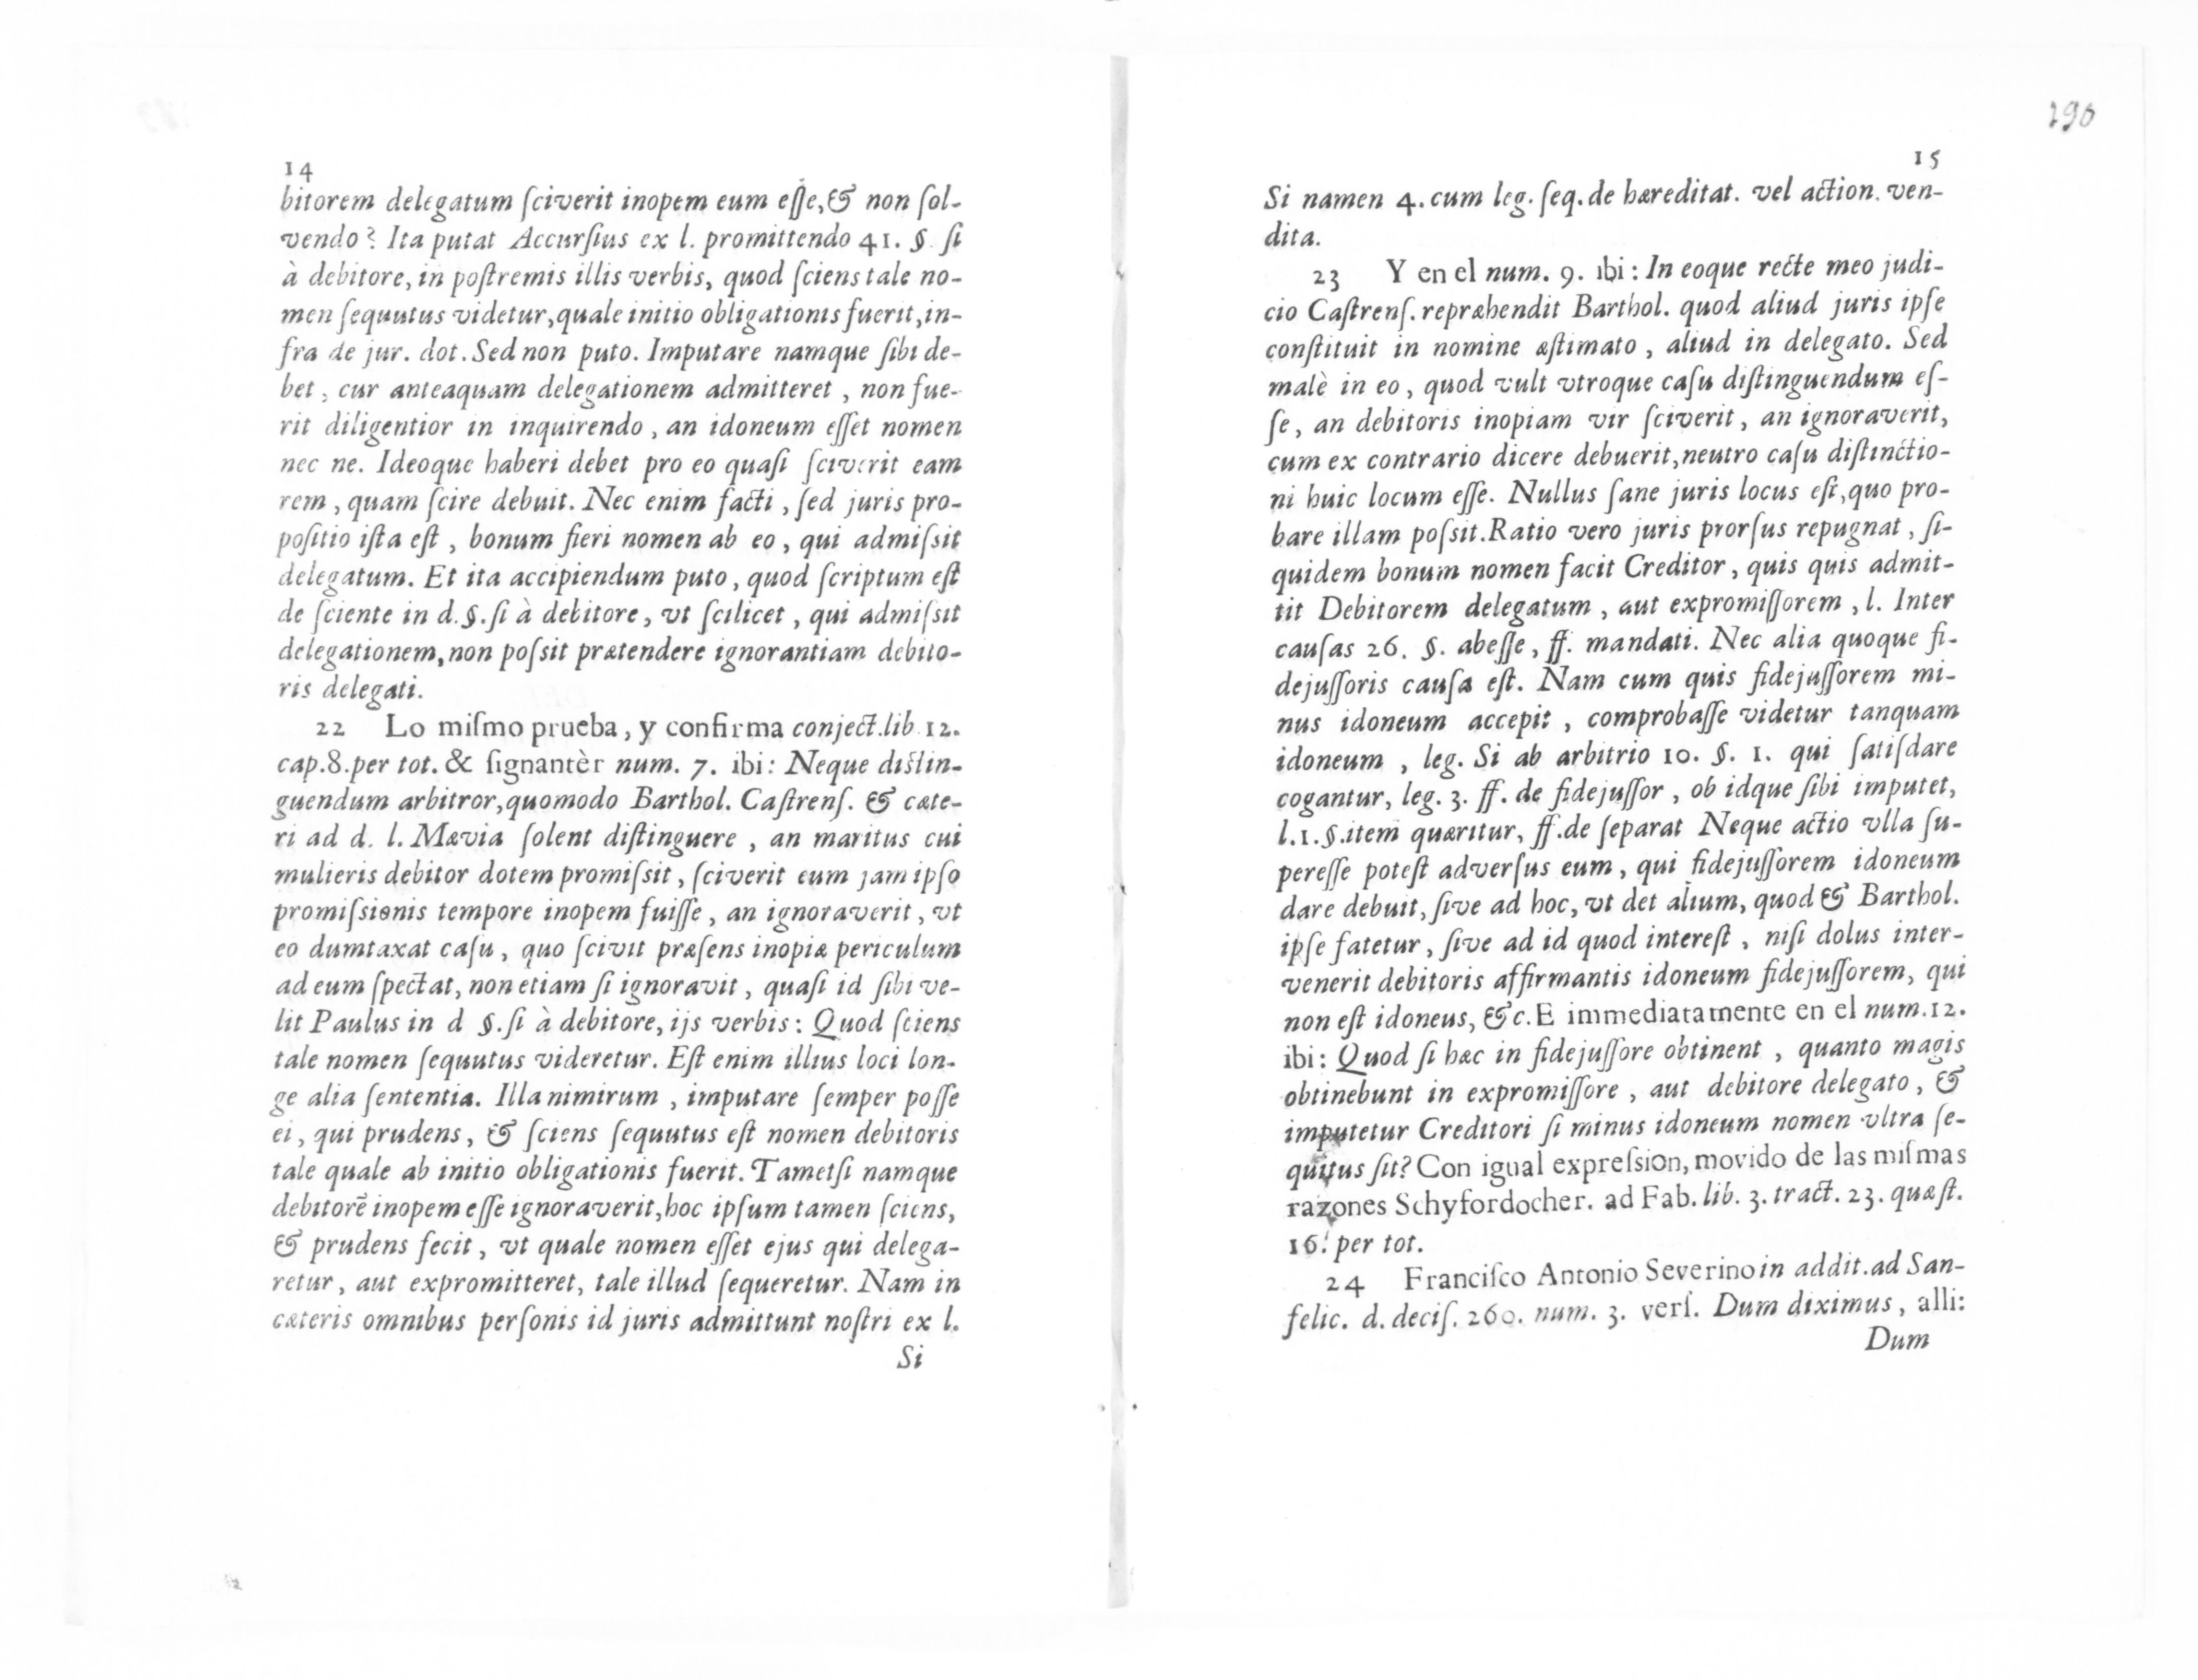 14
bitorem delegatum ſciverit inopem eum eſſe,& non ſol-
vendo? Ita putat Accurſius ex l. promittendo 41. §. ſi
à debitore, in poſtremis illis verbis, quod ſciens tale no-
men ſequutus videtur,quale initio obligationis fuerit,in-
fra de jur. dot. Sed non puto. Imputare namque ſibi de-
bet, cur anteaquam delegationem admitteret, non fue-
rit diligentior in inquirendo, an idoneum eſſet nomen
nec ne. Ideoque haberi debet pro eo quaſi ſciverit eam
rem, quam ſcire debuit. Nec enim facti, ſed juris pro-
poſitio iſta eſt, bonum fieri nomen ab eo, qui admiſsit
delegatum. Et ita accipiendum puto, quod ſcriptum eſt
de ſciente in d.§.ſi à debitore, vt ſcilicet, qui admiſsit
delegationem,non poſsit prætendere ignorantiam debito-
ris delegati.
22 Lo miſmo prueba, y confirma conject.lib.12.
cap.8.per tot. & ſignantèr num. 7. ibi: Neque diſtin-
guendum arbitror,quomodo Barthol. Caſtrenſ. & cæte-
ri ad d. l. Mævia ſolent diſtinguere, an maritus cui
mulieris debitor dotem promiſsit, ſciverit eum jam ipſo
promiſsionis tempore inopem fuiſſe, an ignoraverit, vt
eo dumtaxat caſu, quo ſcivit præſens inopiæ periculum
ad eum ſpectat, non etiam ſi ignoravit, quaſi id ſibi ve-
lit Paulus in d §.ſi à debitore, ijs verbis: Quod ſciens
tale nomen ſequutus videretur. Eſt enim illius loci lon-
ge alia ſententia. Illa nimirum, imputare ſemper poſſe
ei, qui prudens, & ſciens ſequutus eſt nomen debitoris
tale quale ab initio obligationis fuerit. Tametſi namque
debitorē inopem eſſe ignoraverit,hoc ipſum tamen ſciens,
& prudens fecit, vt quale nomen eſſet ejus qui delega-
retur, aut expromitteret, tale illud ſequeretur. Nam in
cæteris omnibus perſonis id juris admittunt noſtri ex l.
Si
190
15
Si namen 4. cum leg. ſeq. de hæreditat. vel action. ven-
dita.
23 Y en el num. 9. ibi: In eoque recte meo judi-
cio Caſtrenſ. repræhendit Barthol. quod aliud juris ipſe
conſtituit in nomine æſtimato, aliud in delegato. Sed
malè in eo, quod vult vtroque caſu diſtinguendum eſ-
ſe, an debitoris inopiam vir ſciverit, an ignoraverit,
cum ex contrario dicere debuerit,neutro caſu diſtinctio-
ni huic locum eſſe. Nullus ſane juris locus eſt,quo pro-
bare illam poſsit.Ratio vero juris prorſus repugnat, ſi-
quidem bonum nomen facit Creditor, quis quis admit-
tit Debitorem delegatum, aut expromiſſorem, l. Inter
cauſas 26. §. abeſſe, ff. mandati. Nec alia quoque fi-
dejuſſoris cauſa eſt. Nam cum quis fidejuſſorem mi-
nus idoneum accepit, comprobaſſe videtur tanquam
idoneum, leg. Si ab arbitrio 10. §. 1. qui ſatiſdare
cogantur, leg. 3. ff. de fidejuſſor, ob idque ſibi imputet,
l.1.§.item quæritur, ff.de ſeparat Neque actio vlla ſu-
pereſſe poteſt adverſus eum, qui fidejuſſorem idoneum
dare debuit, ſive ad hoc, vt det alium, quod & Barthol.
ipſe fatetur, ſive ad id quod intereſt, niſi dolus inter-
venerit debitoris affirmantis idoneum fidejuſſorem, qui
non eſt idoneus, &c.E immediatamente en el num.12.
ibi: Quod ſi hæc in fidejuſſore obtinent, quanto magis
obtinebunt in expromiſſore, aut debitore delegato, &
imputetur Creditori ſi minus idoneum nomen vltra ſe-
quutus ſit? Con igual expreſsion, movido de las miſmas
razones Schyfordocher. ad Fab. lib. 3. tract. 23. quæſt.
16. per tot.
24 Franciſco Antonio Severino in addit. ad San-
felic. d. deciſ. 260. num. 3. verſ. Dum diximus, alli:
Dum